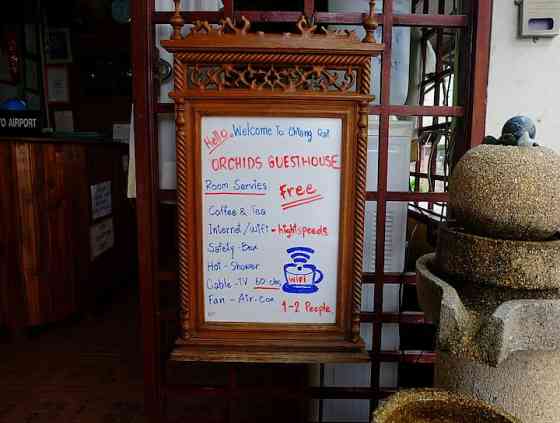 TO AIRPORT
Hello, Welcome To Chiang Rai
ORCHIDS GUESTHOUSE
Room Servies
Free
Coffee & Tea
Internet / wifi - hightspeeds
Safety - Box
Hot - Shower
Cable - TV 60 - chs
WiFi
Fan - Air-con
1-2 People